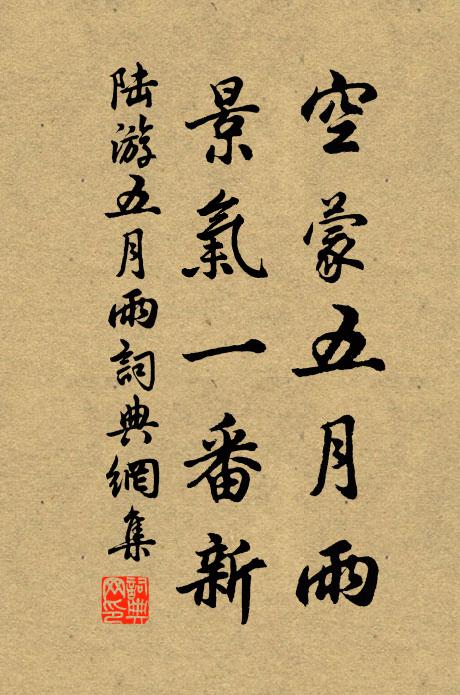 空蒙五月雨
景氣一番新
陸游五月雨詞典網集
詞典
网印